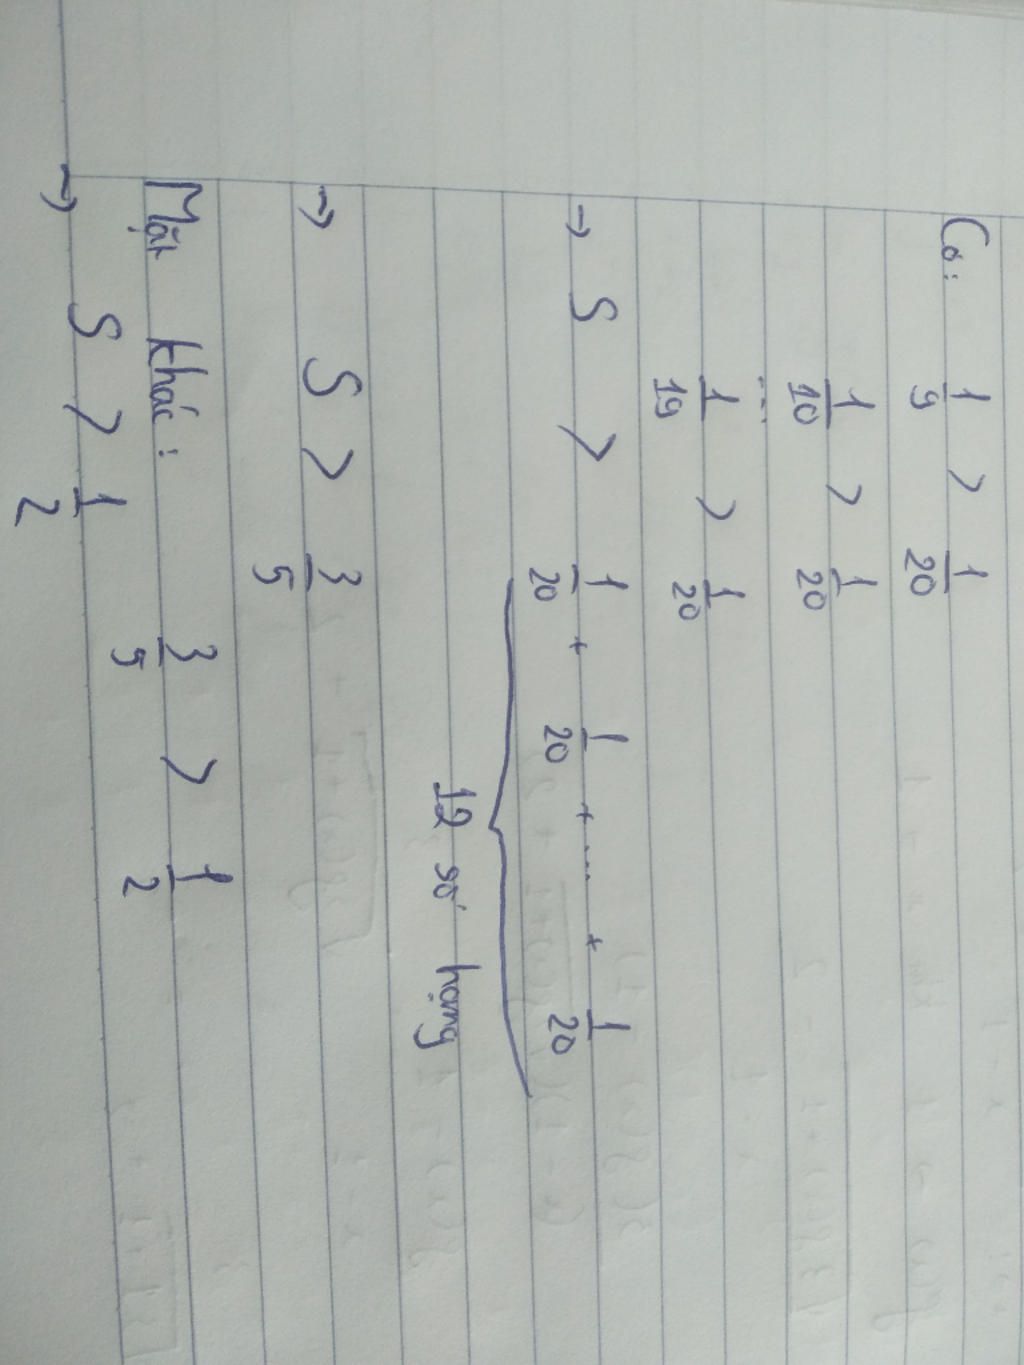 Có: 1/9 > 1/20
1/10 > 1/20
...
1/19 > 1/20
→ S > 1/20 + 1/20 + ... + 1/20
12 số hạng
→ S > 3/5
Mặt khác: 3/5 > 1/2
→ S > 1/2